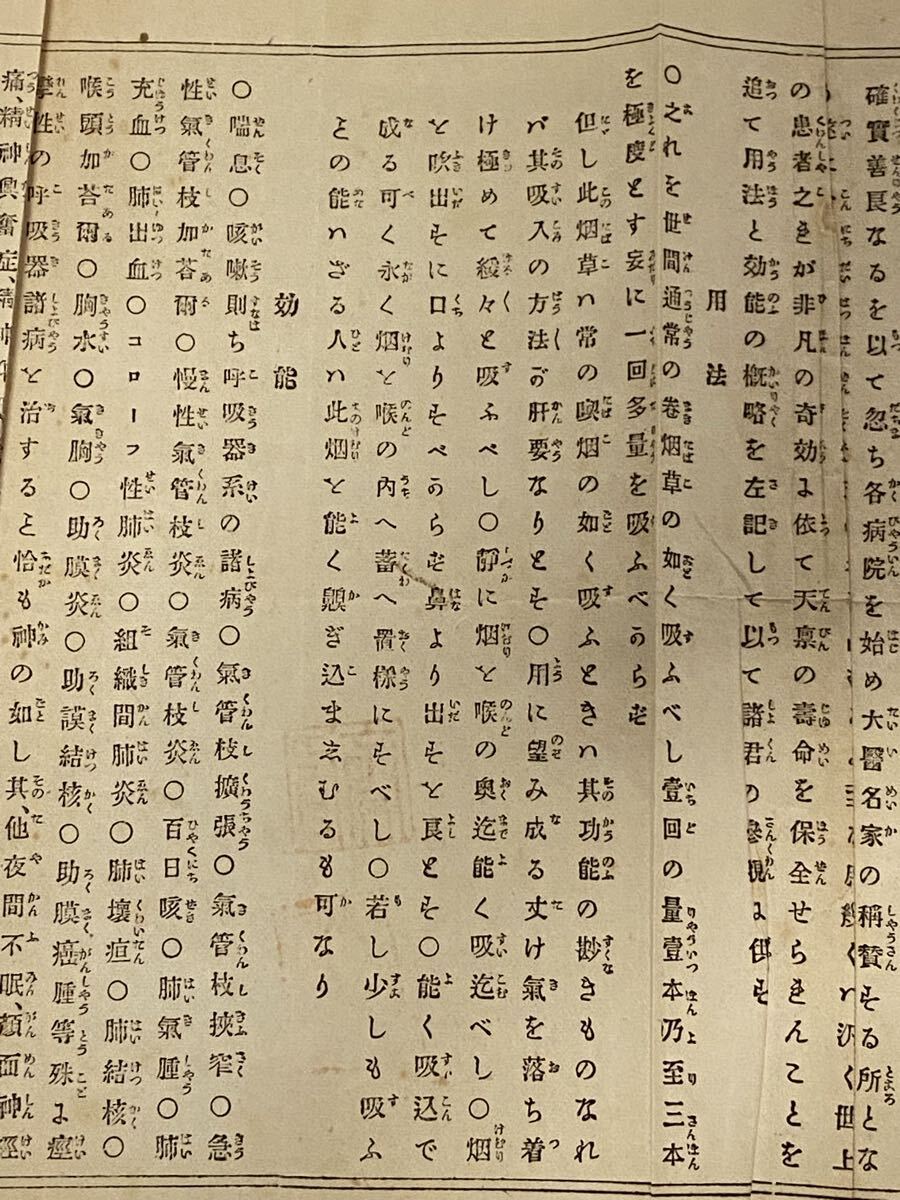 確實善良なるを以て忽ち各病院を始め大醫名家の稱賛する所とな
の患者之きが非凡の奇効よ依て天禀の壽命を保全せらきんことを
追て用法と効能の概略を左記して以て諸君の參觀よ供す
用法
〇之れを世間通常の卷烟草の如く吸ふべし壹回の量壹本乃至三本
を極度とす妄に一回多量を吸ふべからず
但し此烟草ハ常の喫烟の如く吸ふときハ其功能の尠きものなれ
バ其吸入の方法が肝要なりとす〇用に望み成る丈け氣を落ち着
け極めて緩々と吸ふべし〇靜に烟を喉の奧迄能く吸迄べし〇烟
を吹出すに口よりすべからず鼻より出すを良とす〇能く吸込で
成る可く永く烟を喉の內へ蓄へ置樣にすべし〇若し少しも吸ふ
との能ハざる人ハ此烟を能く齅ぎ込ましむるも可なり
効能
〇喘息〇咳嗽則ち呼吸器系の諸病〇氣管枝擴張〇氣管枝挾窄〇急
性氣管枝加荅爾〇慢性氣管枝炎〇氣管枝炎〇百日咳〇肺氣腫〇肺
充血〇肺出血〇コローフ性肺炎〇組織間肺炎〇肺壞疽〇肺結核〇
喉頭加荅爾〇胸水〇氣胸〇助膜炎〇助謨結核〇助膜癌腫等殊よ痙
攣性の呼吸器諸病を治すると恰も神の如し其、他夜間不眠、顏面神經
痛、精神興奮症、